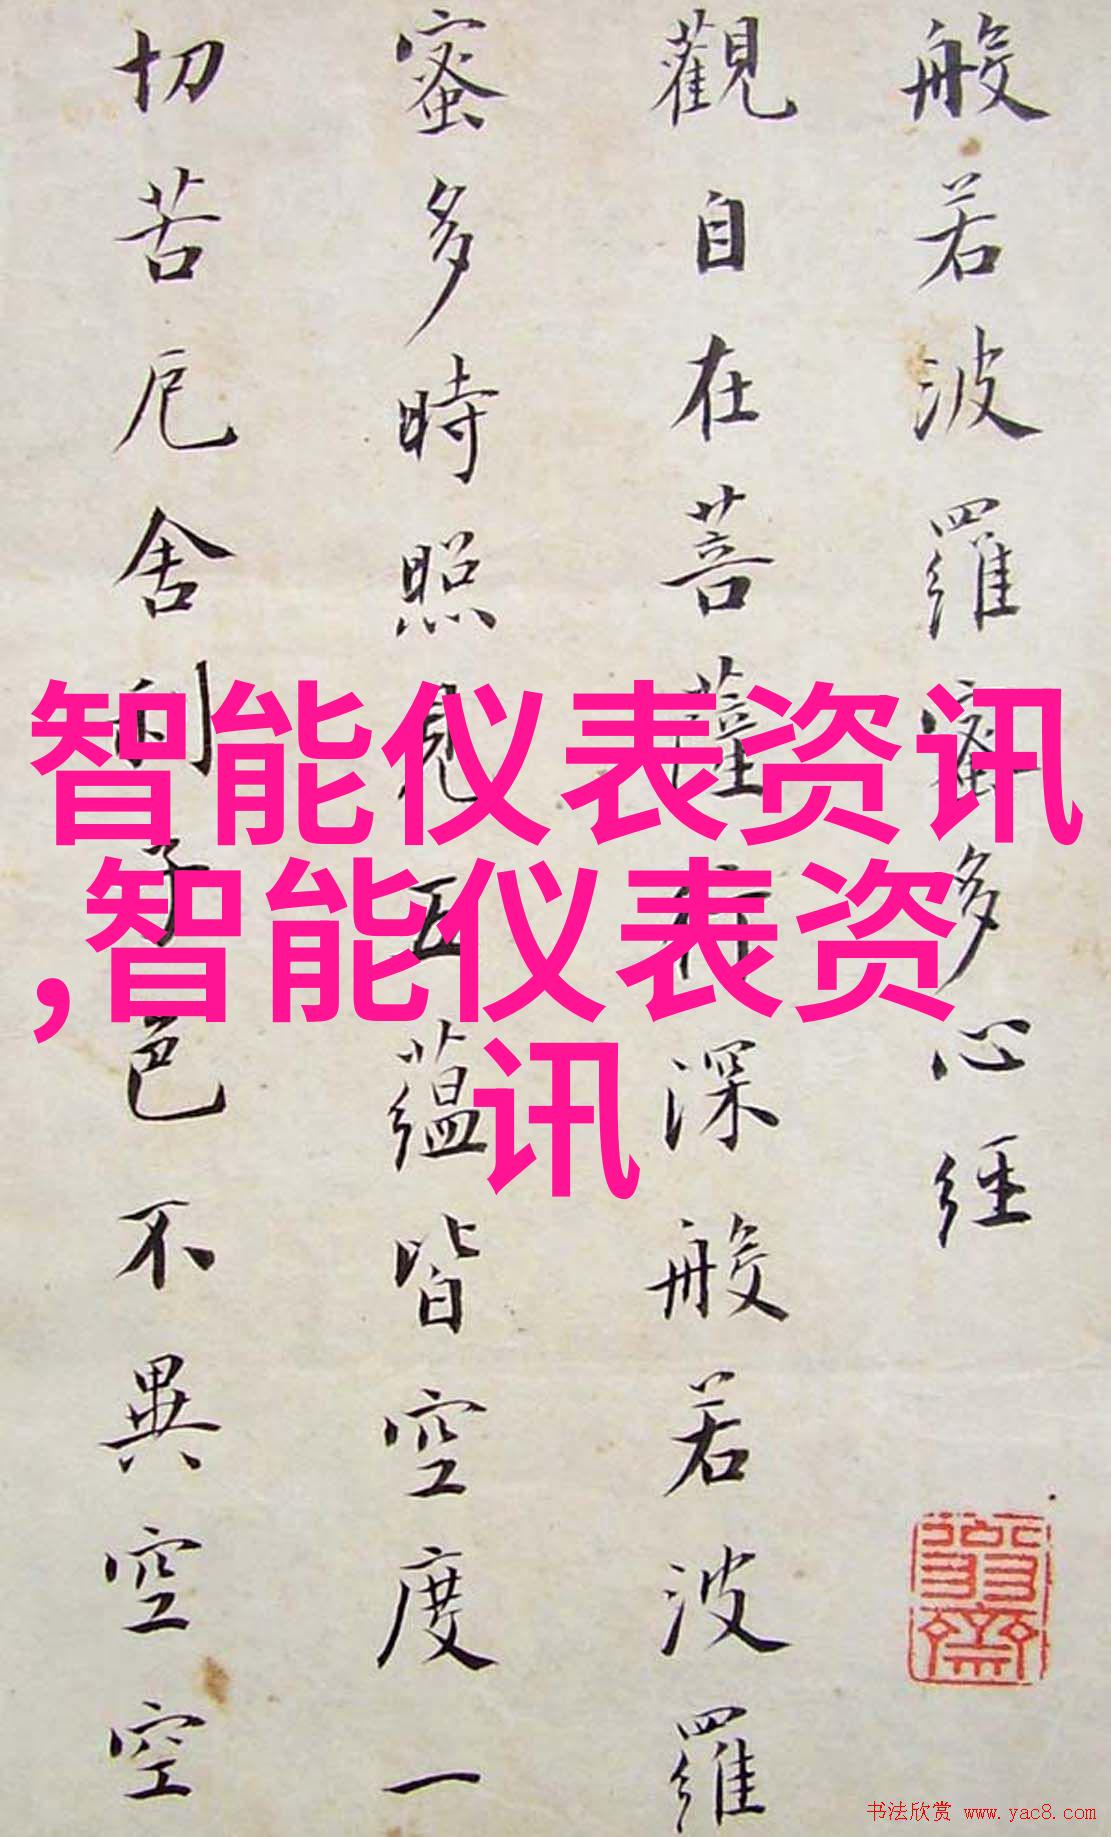 般若波羅蜜多心經
觀自在菩薩行深般若波羅
蜜多時照見五蘊皆空度一
切苦厄舍利子色不異空空
智能仪表资讯
,智能仪表资
讯
书法欣赏 www.yac8.com